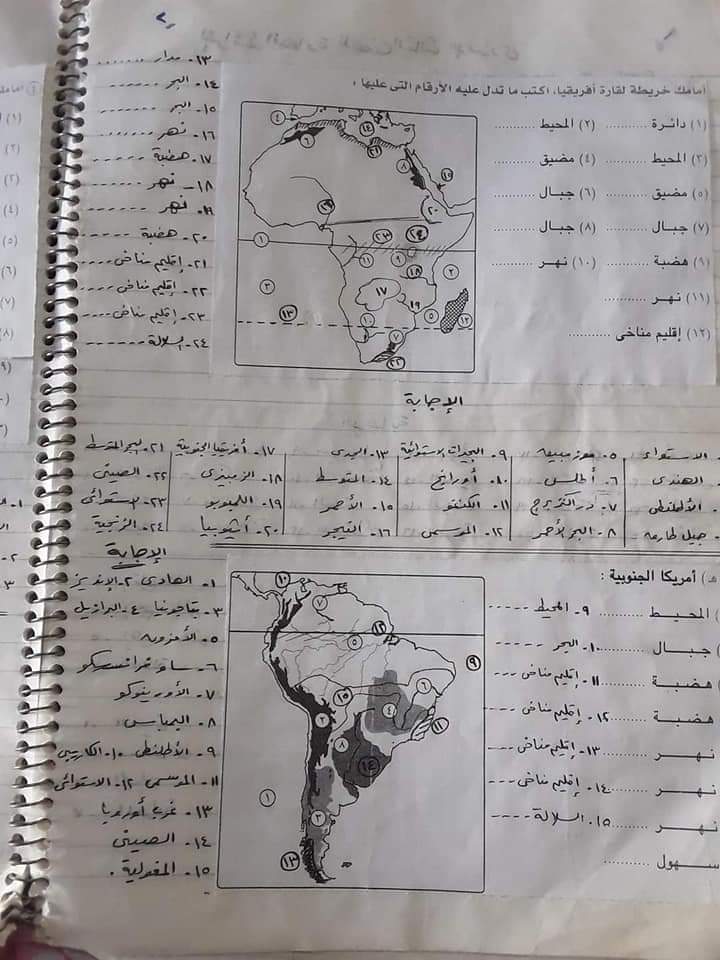 أمامك خريطة لقارة أفريقيا، اكتب ما تدل عليه الأرقام التى عليها :
(١) دائرة .......... (٢) المحيط ..........
(٣) المحيط .......... (٤) مضيق ..........
(٥) مضيق .......... (٦) جبال ..........
(٧) جبال .......... (٨) جبال ..........
(٩) هضبة .......... (١٠) نهر ..........
(١١) نهر ..........
(١٢) إقليم مناخى ..........
١٣- مدار .......
١٤- البحر ------
١٥- البحر ------
١٦- نهر ........
١٧- هضبة ------
١٨- نهر ------
١٩- نهر ------
٢٠- هضبة ------
٢١- إقليم مناخى ----
٢٢- إقليم مناخى ----
٢٣- إقليم مناخى ----
٢٤- السلالة -----
الإجابة
الاستواء
الهندى
الأطلنطى
جبل طارق
٥- موزمبيق
٦- أطلس
٧- دراكنزبرج
٨- البحر الأحمر
٩- البحيرات الاستوائية
١٠- أورانج
١١- الكنغو
١٢- الموسمى
١٣- الجدى
١٤- المتوسط
١٥- الأحمر
١٦- النيجر
١٧- أفريقيا الجنوبية
١٨- الزمبيزى
١٩- اللمبوبو
٢٠- أثيوبيا
٢١- البحر المتوسط
٢٢- الصينى
٢٣- الاستوائى
٢٤- الزنجية
هـ) أمريكا الجنوبية :
المحيط .......... ٩- المحيط -----
جبال .......... ١٠- البحر -----
هضبة .......... ١١- إقليم مناخى ---
هضبة .......... ١٢- إقليم مناخى ---
نهر .......... ١٣- إقليم مناخى ---
نهر .......... ١٤- إقليم مناخى ---
نهر .......... ١٥- السلالة ----
سهول ..........
الإجابة
١- الهادى ٢- الإنديز
٣- بتاجونيا ٤- البرازيل
٥- الأمزون
٦- ساو فرانسسكو
٧- الأورينوكو
٨- البمباس
٩- الأطلنطى ١٠- الكاريبى
١١- الموسمى ١٢- الاستوائى
١٣- غرب أوروبا
١٤- الصينى
١٥- المغولية .